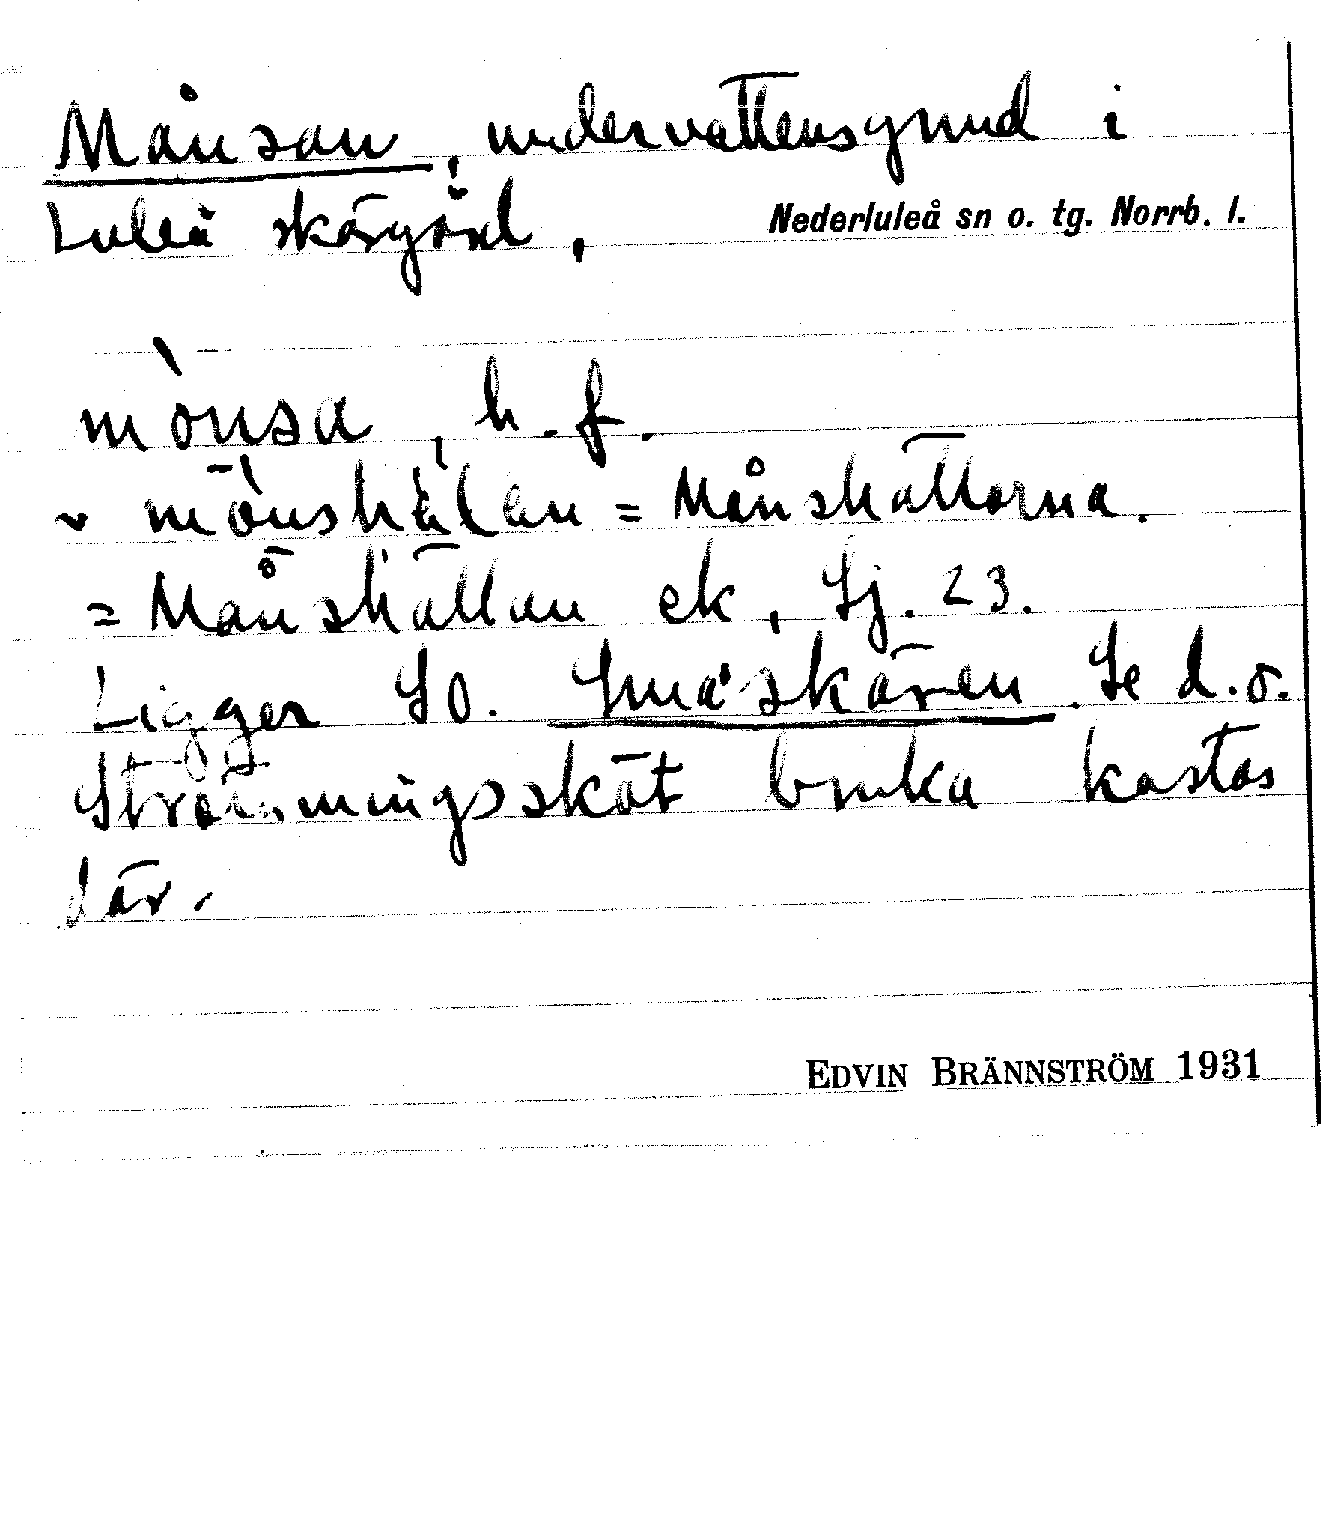 Månsan, undervattensgrund i
Luleå skärgård,
Nederluleå sn o. tg. Norrb. l.
mònsa, b. f.
= Månshällorna.
= Månshällan ek, Sj. 23.
Ligger SO. Småskären. Se d. o.
Strömmingssköt bruka kastas
där.
EDVIN BRÄNNSTRÖM 1931